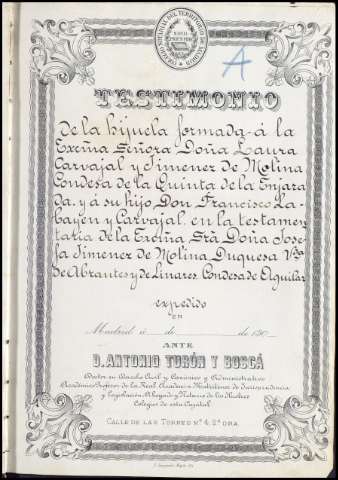 COLEGIO NOTARIAL DEL TERRITORIO DE MADRID
A
TESTIMONIO
de la hijuela formada á la
Excma Señora Doña Laura
Carvajal y Jimenez de Molina
Condesa de la Quinta de la Enjara
da, y á su hijo, Don Francisco La-
bayen y Carvajal, en la testamen
taria de la Excma Srã Doña Jose-
fa Jimenez de Molina, Duquesa Vda
de Abrantes y de Linares, Condesa de Aguilar
expedido
EN
Madrid á de de 190
ANTE
D. ANTONIO TURÓN Y BOSCÁ
Doctor en Derecho Civil y Canónico y Administrativo
Académico Profesor de la Real Academia Matritense de Jurisprudencia
y Legislación Abogado y Notario de los Ilustres
Colegios de esta Capital
CALLE DE LAS TORRES Nº 4, 2º DRA.